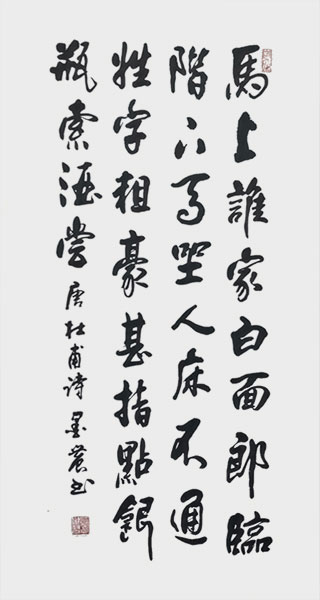 馬上誰家白面郎臨
階下馬坐人床不通
姓字粗豪甚指點銀
瓶索酒嘗 唐杜甫詩 墨農书